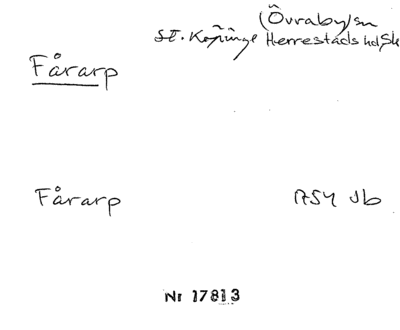 (Övraby sn
St. Köpinge Herrestads hd, Sk
Fårarp
Fårarp 1754 Jb
Nr 17813